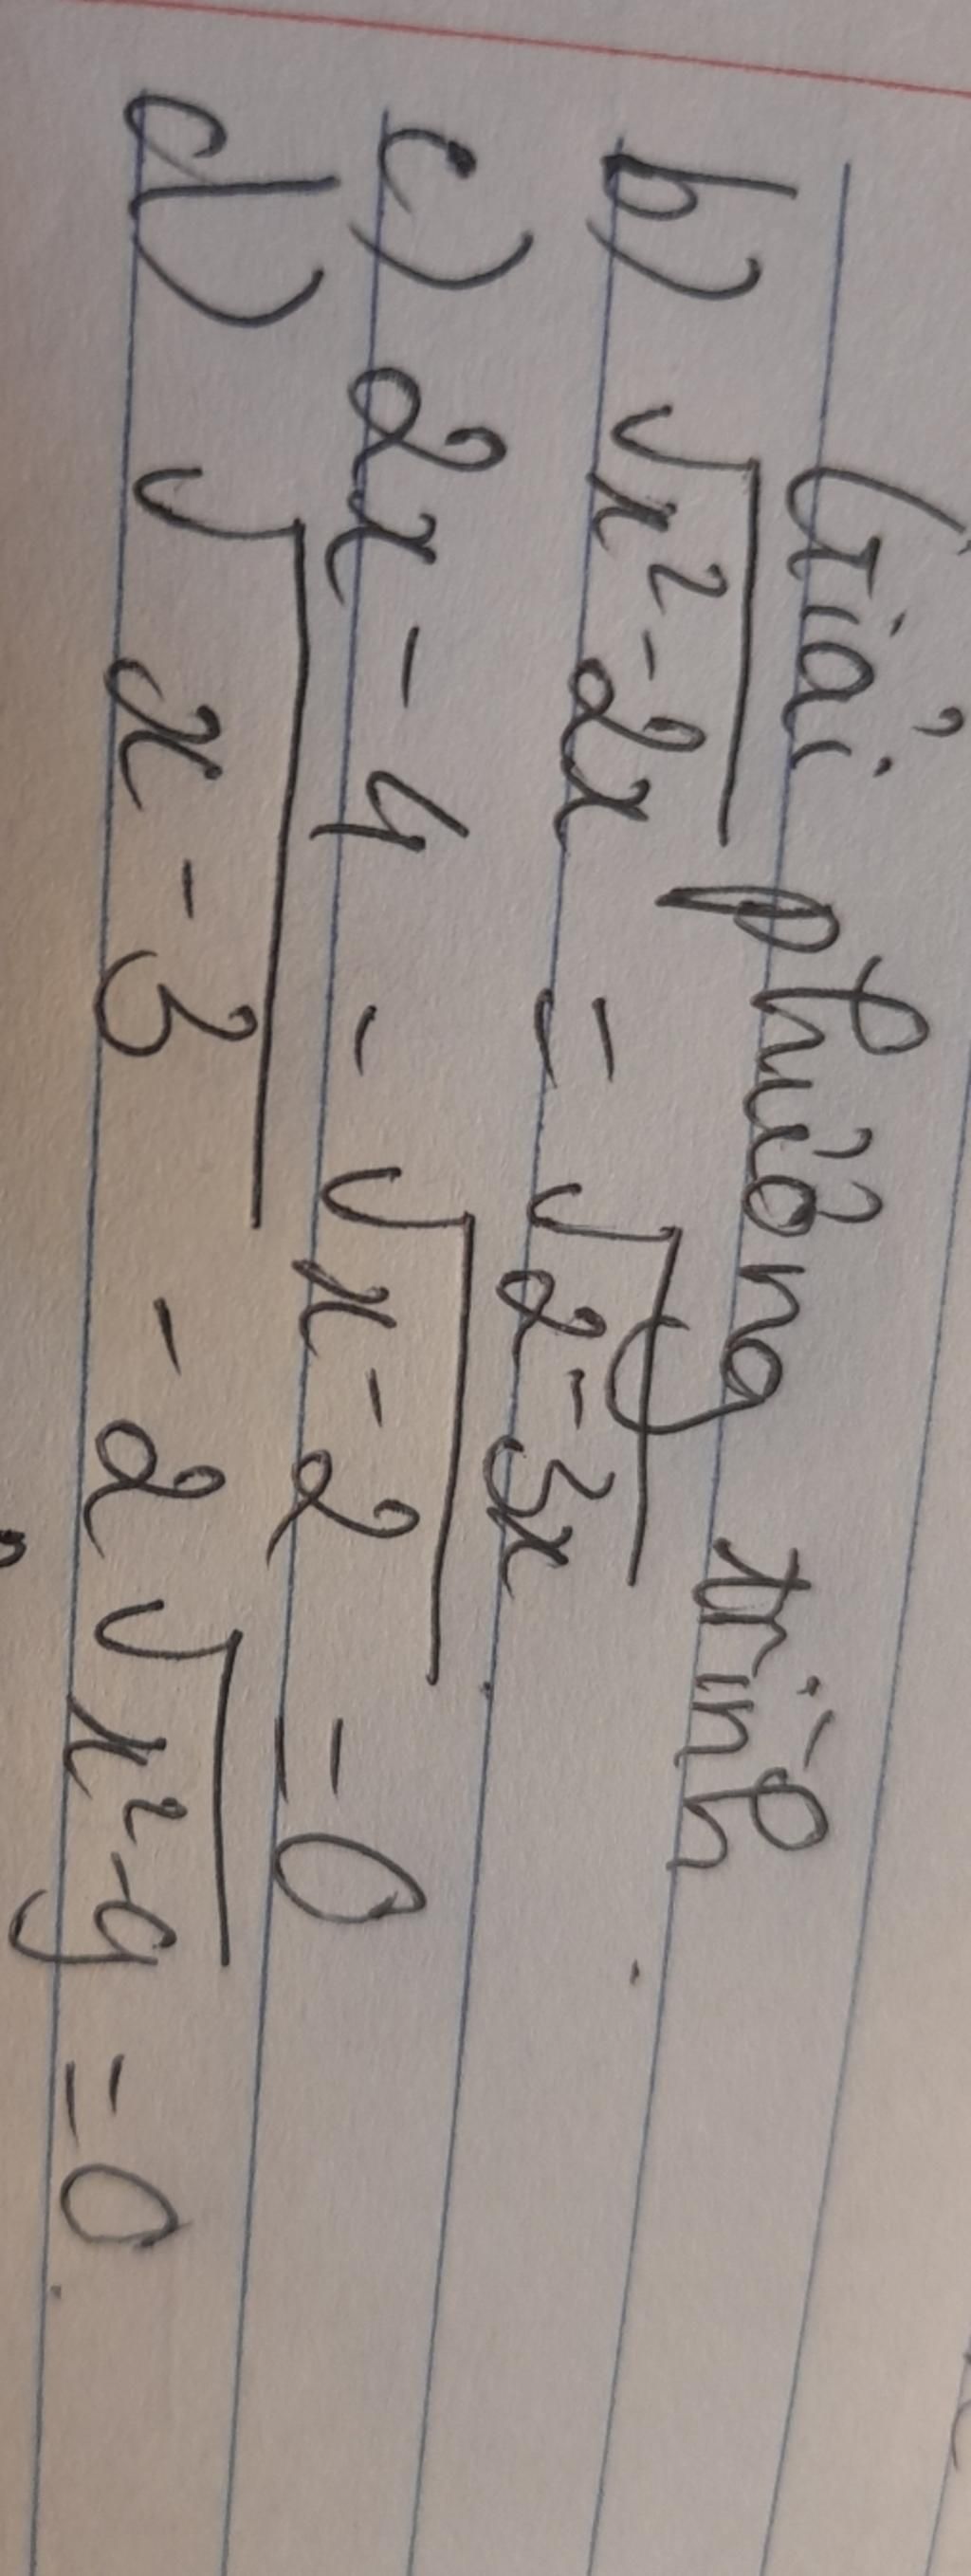 Giải phương trình
b) √x² - 2x = √2 - 3x
c) 2x - 4 - √x - 2 = 0
d) √x - 3 - 2√x² - 9 = 0.